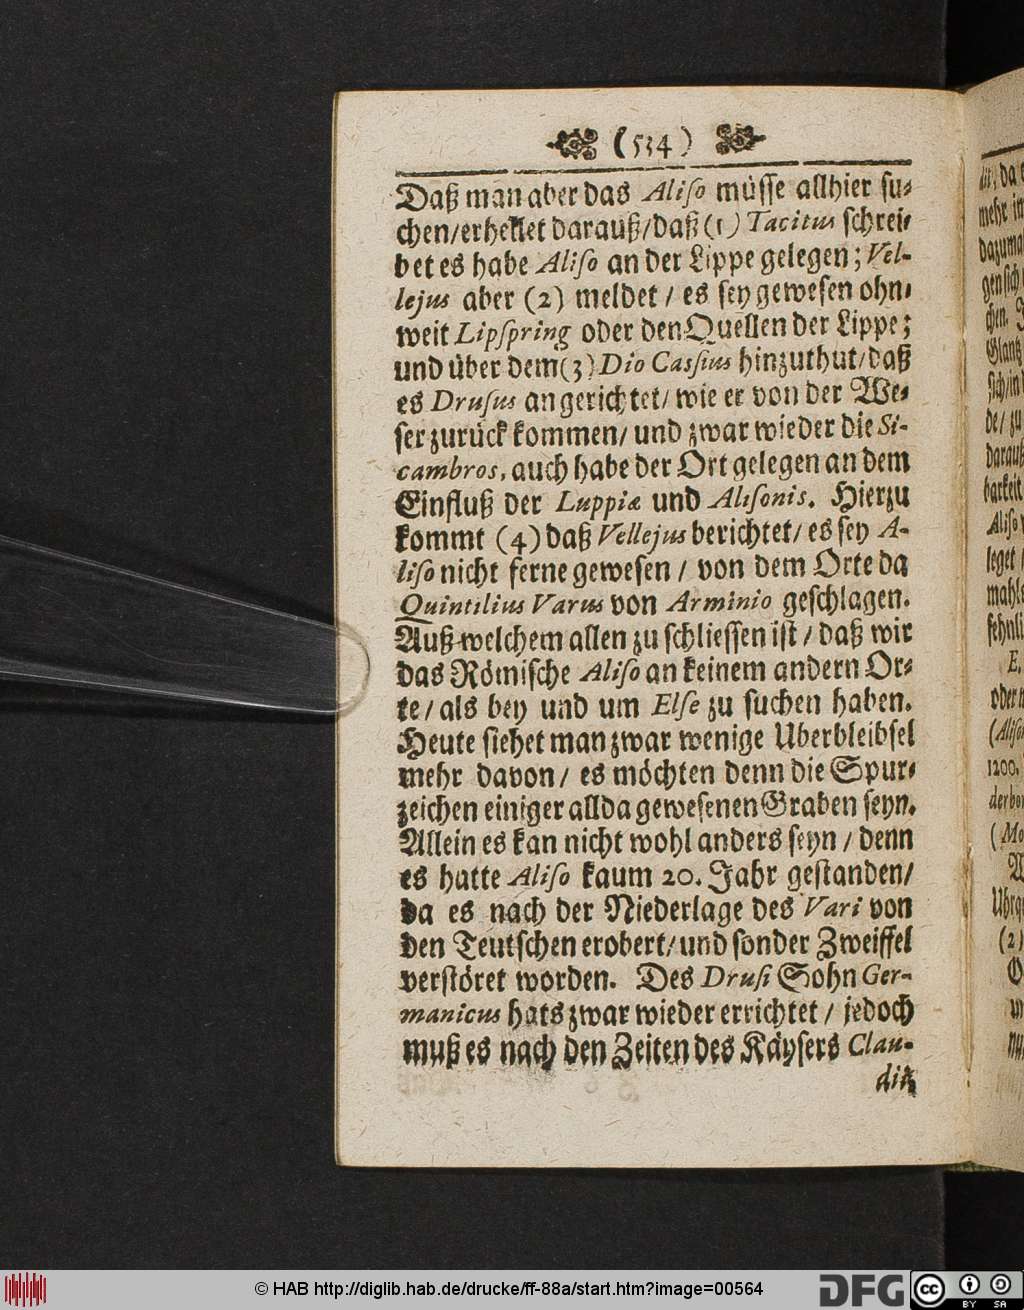 (534)
Daß man aber das Aliso müsse allhier su-
chen/erhellet darauß/daß (1) Tacitus schrei-
bet es habe Aliso an der Lippe gelegen; Vel-
lejus aber (2) meldet / es sey gewesen ohn-
weit Lipspring oder den Quellen der Lippe;
und über dem (3) Dio Cassius hinzuthut/daß
es Drusus angerichtet/ wie er von der We-
ser zurück kommen/ und zwar wieder die Si-
cambros, auch habe der Ort gelegen an dem
Einfluß der Luppiæ und Alisonis. Hierzu
kommt (4) daß Vellejus berichtet/ es sey A-
liso nicht ferne gewesen / von dem Orte da
Quintilius Varus von Arminio geschlagen.
Auß welchem allen zu schliessen ist / daß wir
das Römische Aliso an keinem andern Or-
te/ als bey und um Else zu suchen haben.
Heute siehet man zwar wenige Uberbleibsel
mehr davon/ es möchten denn die Spur-
zeichen einiger allda gewesenen Graben seyn.
Allein es kan nicht wohl anders seyn / denn
es hatte Aliso kaum 20. Jahr gestanden/
da es nach der Niederlage des Vari von
den Teutschen erobert/ und sonder Zweiffel
verstöret worden. Des Drusi Sohn Ger-
manicus hats zwar wieder errichtet / jedoch
muß es nach den Zeiten des Käysers Clau-
dii,
dii, da
mehr in
dazuma
gen sich
chen.
Glantz
sich/in
de/ zu
darauß
barkeit
Aliso
leget
mahle
sehnli
E.
oder
(Aliso
1200.
derbor
(Mo
Uhrq
(2)
© HAB http://diglib.hab.de/drucke/ff-88a/start.htm?image=00564
DFG
cc
BY SA